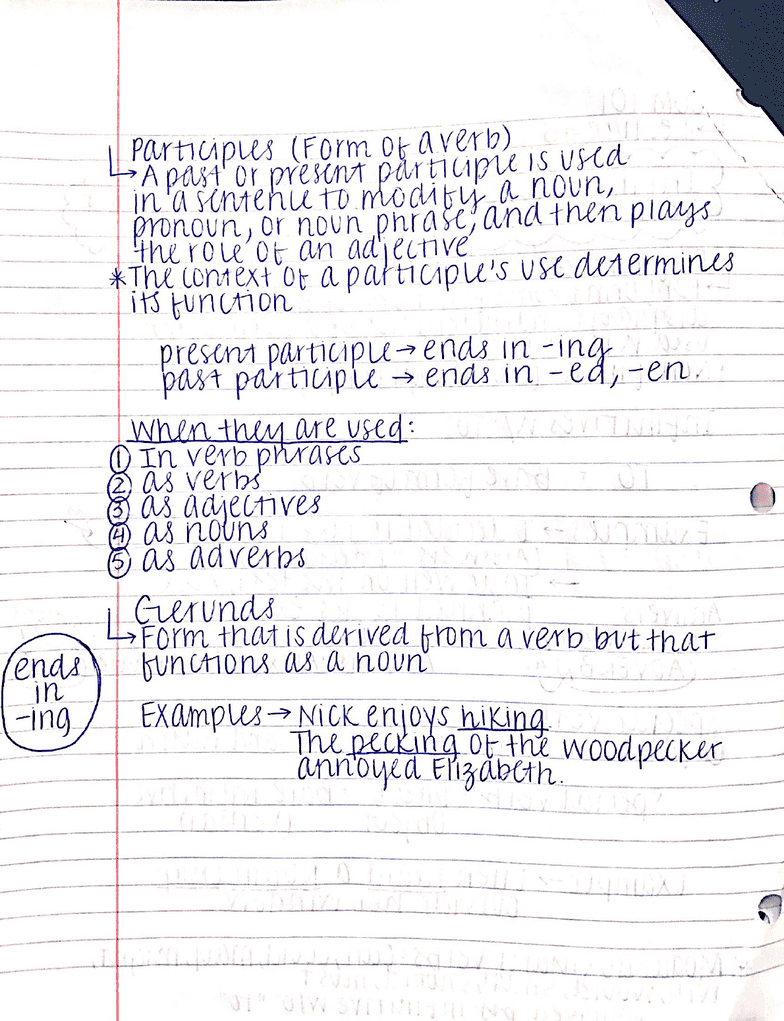 Participles (Form of a verb)
↳ A past or present participle is used
in a sentence to modify a noun,
pronoun, or noun phrase, and then plays
the role of an adjective
* The context of a participle's use determines
its function
present participle → ends in -ing
past participle → ends in -ed, -en.
When they are used:
① In verb phrases
② as verbs
③ as adjectives
④ as nouns
⑤ as adverbs
Gerunds
↳ Form that is derived from a verb but that
functions as a noun
ends
in
-ing
Examples → Nick enjoys hiking.
The pecking of the woodpecker
annoyed Elizabeth.